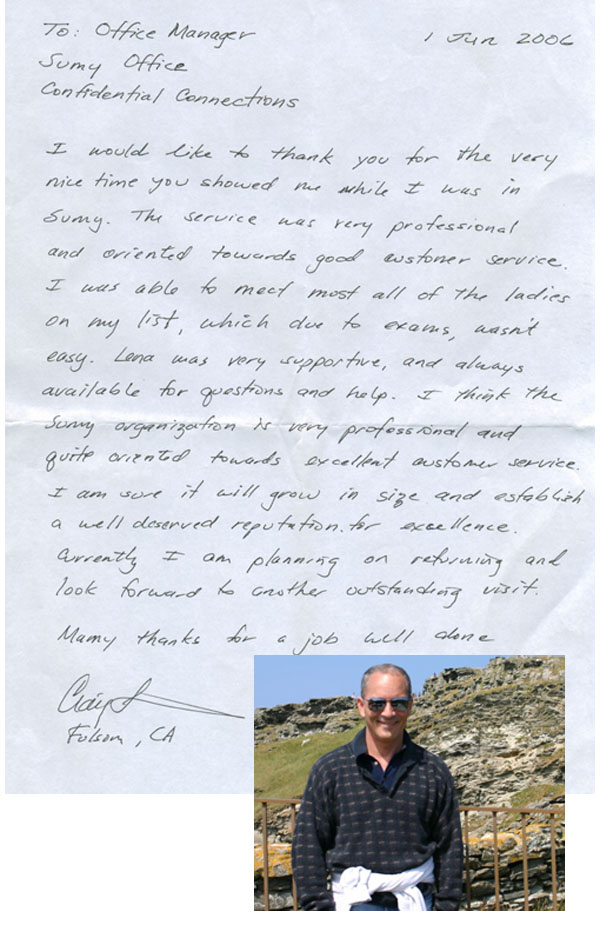 To: Office Manager
1 Jun 2006
Sumy Office
Confidential Connections
I would like to thank you for the very
nice time you showed me while I was in
Sumy. The service was very professional
and oriented towards good customer service.
I was able to meet most all of the ladies
on my list, which due to exams, wasn't
easy. Lena was very supportive, and always
available for questions and help. I think the
Sumy organization is very professional and
quite oriented towards excellent customer service.
I am sure it will grow in size and establish
a well deserved reputation for excellence.
Currently I am planning on returning and
look forward to another outstanding visit.
Many thanks for a job well done
Craig
Folsom, CA